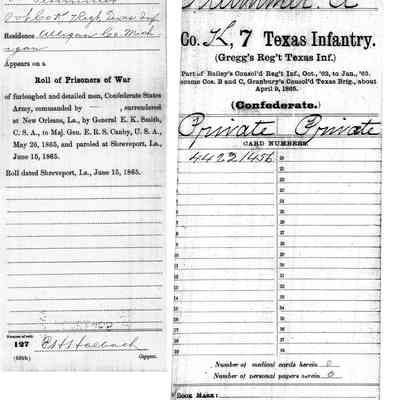 Co K 7 Regt Texas Inf
Residence Allegan Co. Mich
igan
Appears on a
Roll of Prisoners of War
of furloughed and detailed men, Confederate States
Army, commanded by —, surrendered
at New Orleans, La., by General E. K. Smith,
C. S. A., to Maj. Gen. E. R. S. Canby, U. S. A.,
May 26, 1865, and paroled at Shreveport, La.,
June 15, 1865.
Roll dated Shreveport, La., June 15, 1865.
Number of roll:
127
(639b) Copyist.
Co. K, 7 Texas Infantry.
(Gregg's Reg't Texas Inf.)
Part of Bailey's Consol'd Reg't Inf., Oct., '62, to Jan., '63.
Became Cos. B and C, Granbury's Consol'd Texas Brig., about
April 9, 1865.
(Confederate.)
Private Private
CARD NUMBERS.
44221456
Number of medical cards herein 0
Number of personal papers herein 0
BOOK MARK: